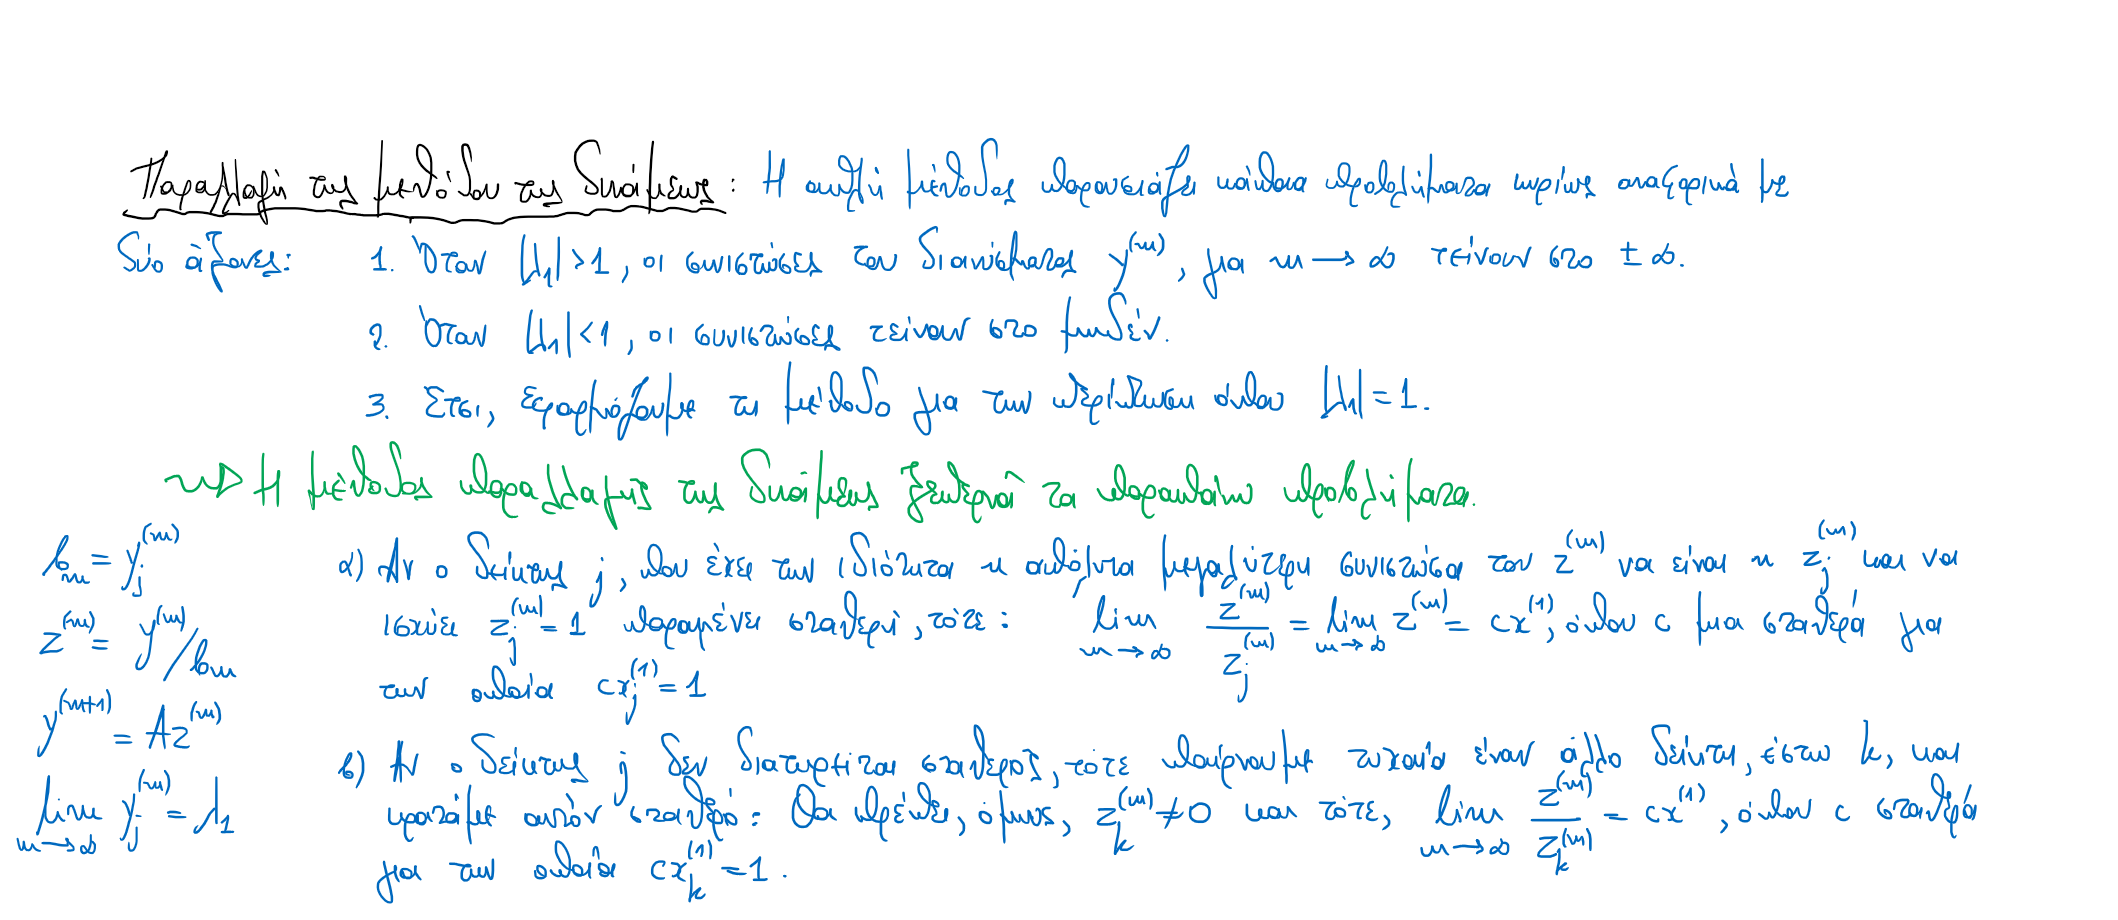 Παραλλαγή της μεθόδου της δυνάμεως: Η απλή μέθοδος παρουσιάζει κάποια προβλήματα κυρίως αναφορικά με
δύο άξονες: 1. Όταν |λ₁|>1, οι συνιστώσες του διανύσματος y^(m), για m → ∞ τείνουν στο ± ∞.
2. Όταν |λ₁|<1, οι συνιστώσες τείνουν στο μηδέν.
3. Έτσι, εφαρμόζουμε τη μέθοδο για την περίπτωση όπου |λ₁| = 1.
~> Η μέθοδος παραλλαγής της δυνάμεως ξεπερνά τα παραπάνω προβλήματα.
b_m = y_j^(m)
z^(m) = y^(m)/b_m
y^(m+1) = Az^(m)
lim m→∞ y_j^(m) = λ₁
α) Αν ο δείκτης j, που έχει την ιδιότητα η απόλυτα μεγαλύτερη συνιστώσα του z^(m) να είναι η z_j^(m) και να
ισχύει z_j^(m) = 1 παραμένει σταθερή, τότε: lim m→∞ z^(m)/z_j^(m) = lim m→∞ z^(m) = cx^(1), όπου c μια σταθερά για
την οποία cx_j^(1) = 1
β) Αν ο δείκτης j δεν διατηρείται σταθερός, τότε παίρνουμε τυχαία έναν άλλο δείκτη, έστω k, και
κρατάμε αυτόν σταθερό: Θα πρέπει, όμως, z_k^(m) ≠ 0 και τότε, lim m→∞ z^(m)/z_k^(m) = cx^(1), όπου c σταθερά
για την οποία cx_k^(1) = 1.